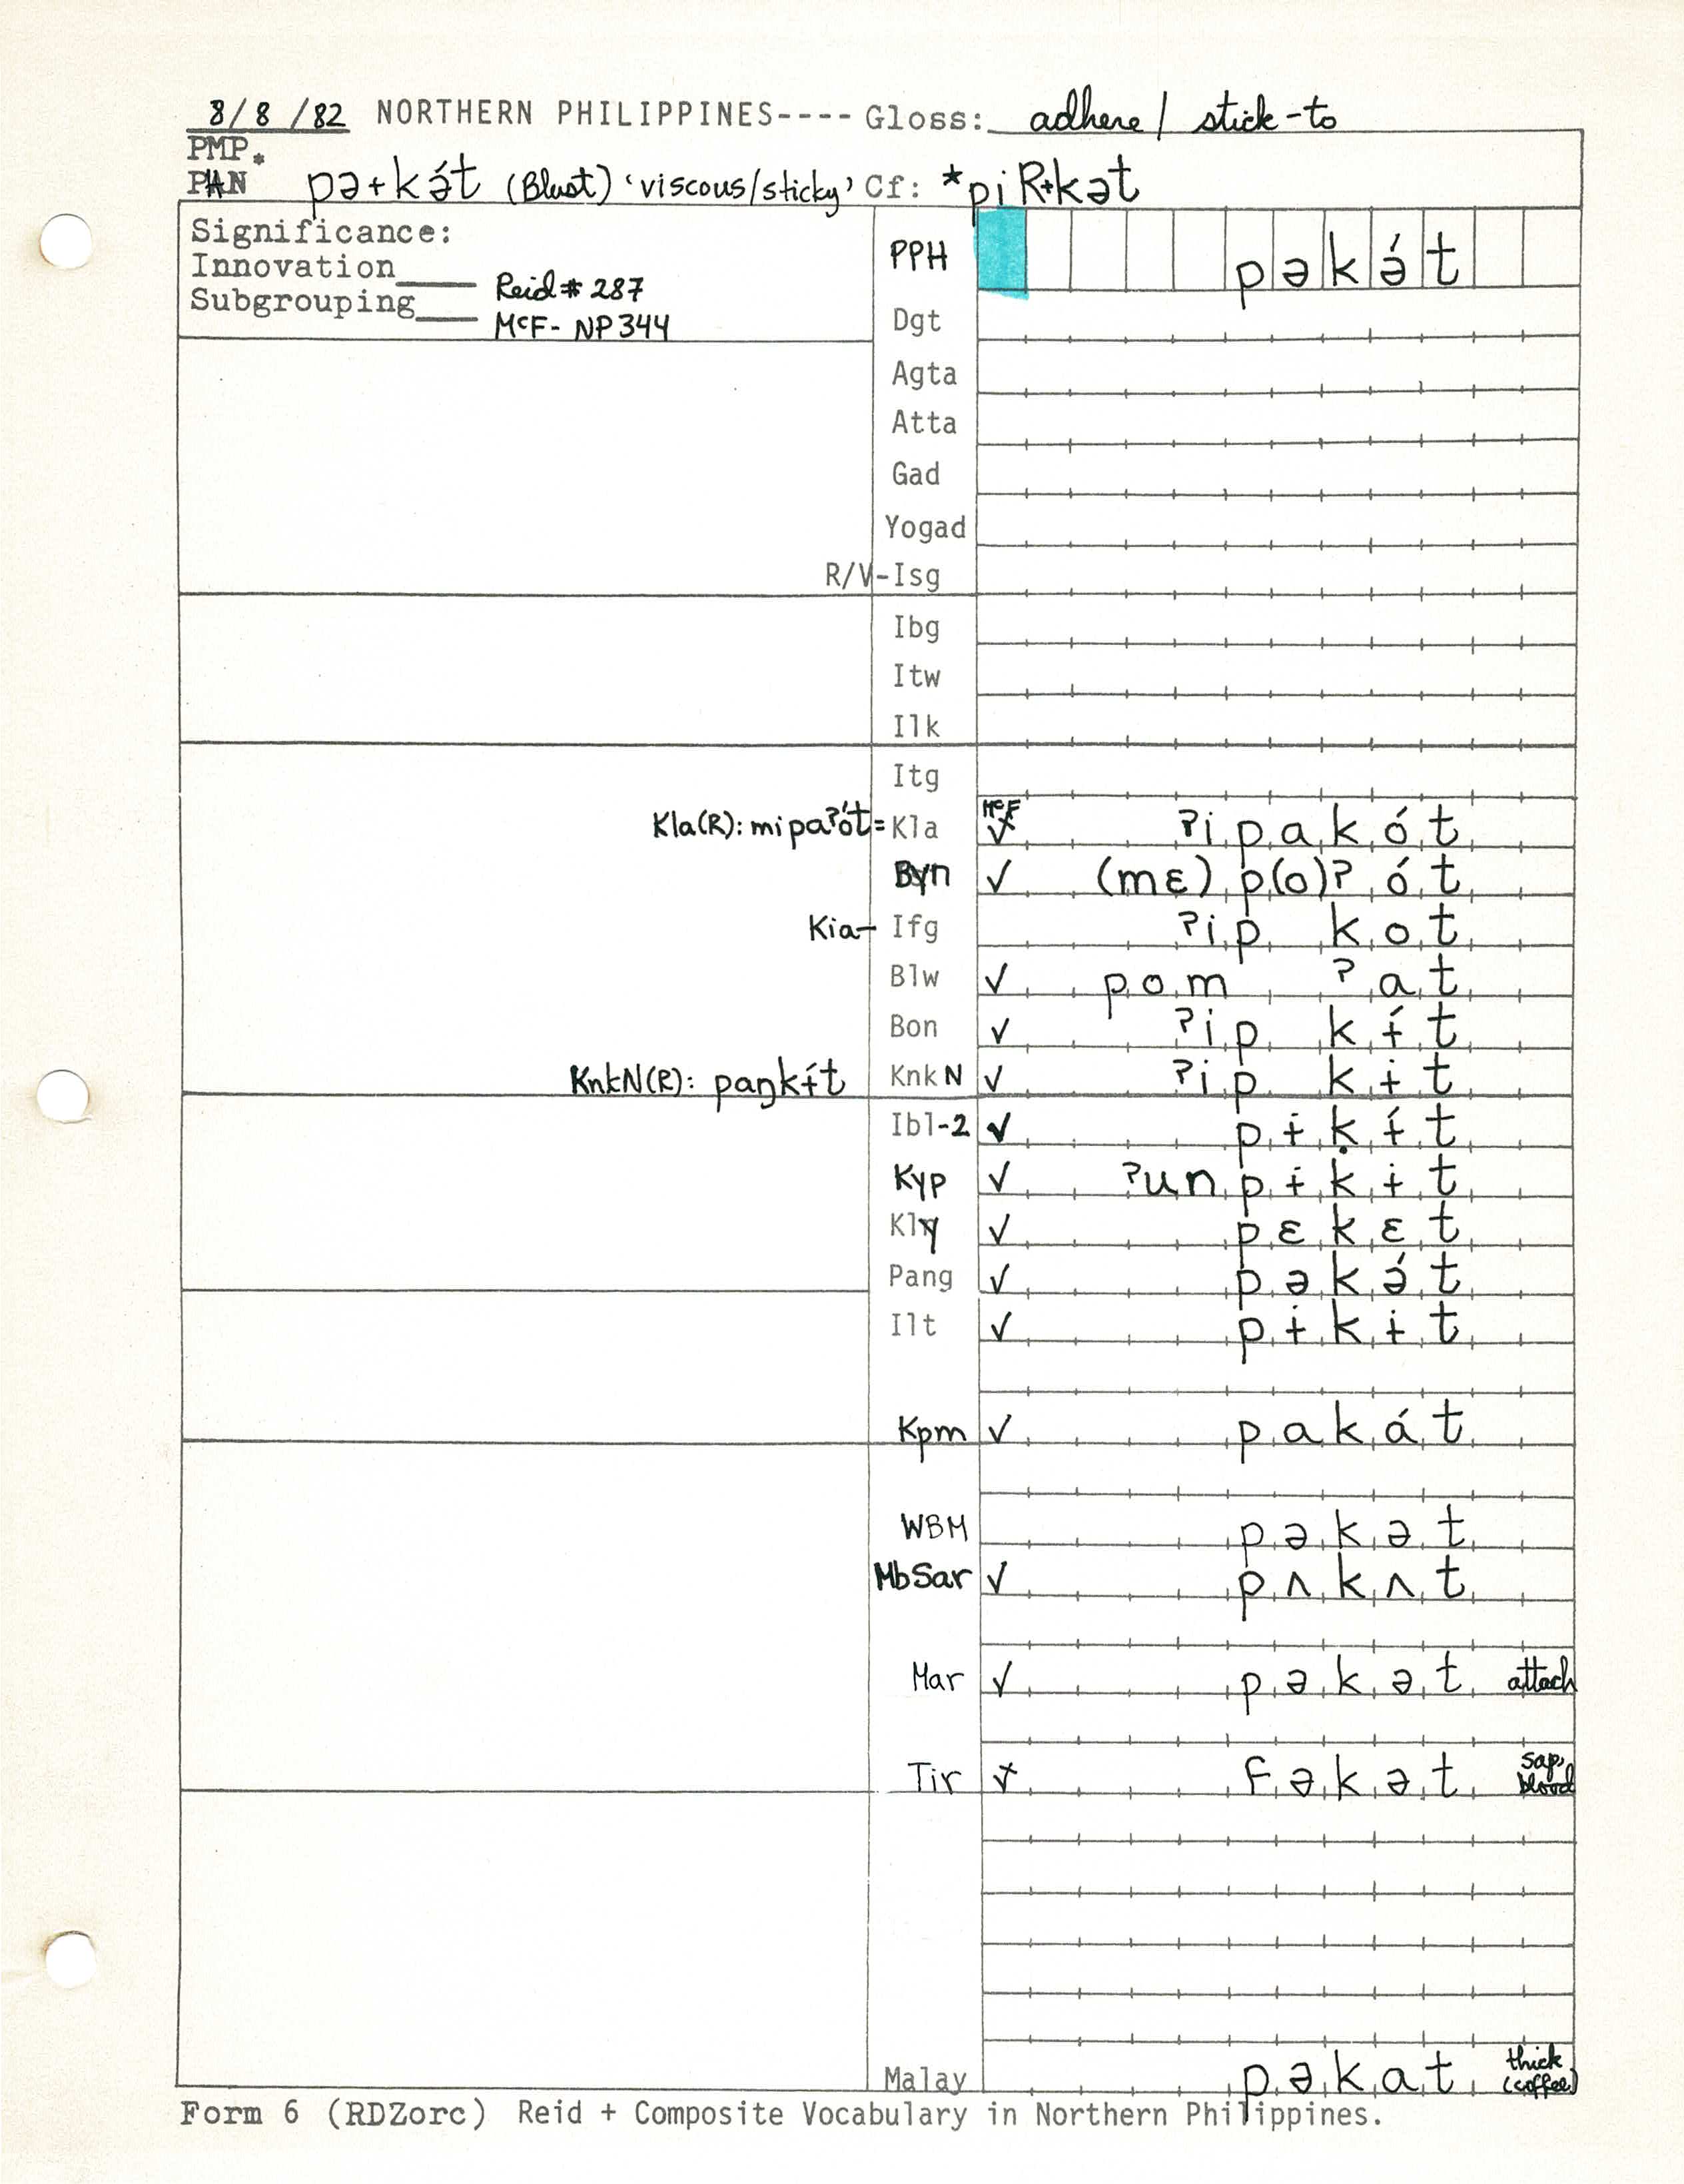 8/8/82 NORTHERN PHILIPPINES---- Gloss: adhere / stick-to
PMP *
PAN pə+kə́t (Blust) ‘viscous/sticky’ Cf: *piR+kət
Significance:
Innovation____ Reid # 287
Subgrouping___ McF- NP344
PPH pəkə́t
Dgt
Agta
Atta
Gad
Yogad
R/V-Isg
Ibg
Itw
Ilk
Itg
Kla(R): mipaʔót = Kla McF ✓ ʔipakót
Byn ✓ (mɛ)p(o)ʔót
Kia- Ifg ʔipkot
Blw ✓ pomʔat
Bon ✓ ʔipkɨ́t
KnkN(R): paŋkɨ́t KnkN ✓ ʔipkɨt
Ibl-2 ✓ pɨkɨ́t
Kyp ✓ ʔunpɨkɨt
Kly ✓ pɛkɛt
Pang ✓ pəkə́t
Ilt ✓ pɨkɨt
Kpm ✓ pakát
WBM pəkət
MbSar ✓ pʌkʌt
Mar ✓ pəkət attach
Tir ✓ fəkət sap, blood
Malay pəkat thick (coffee)
Form 6 (RDZorc) Reid + Composite Vocabulary in Northern Philippines.